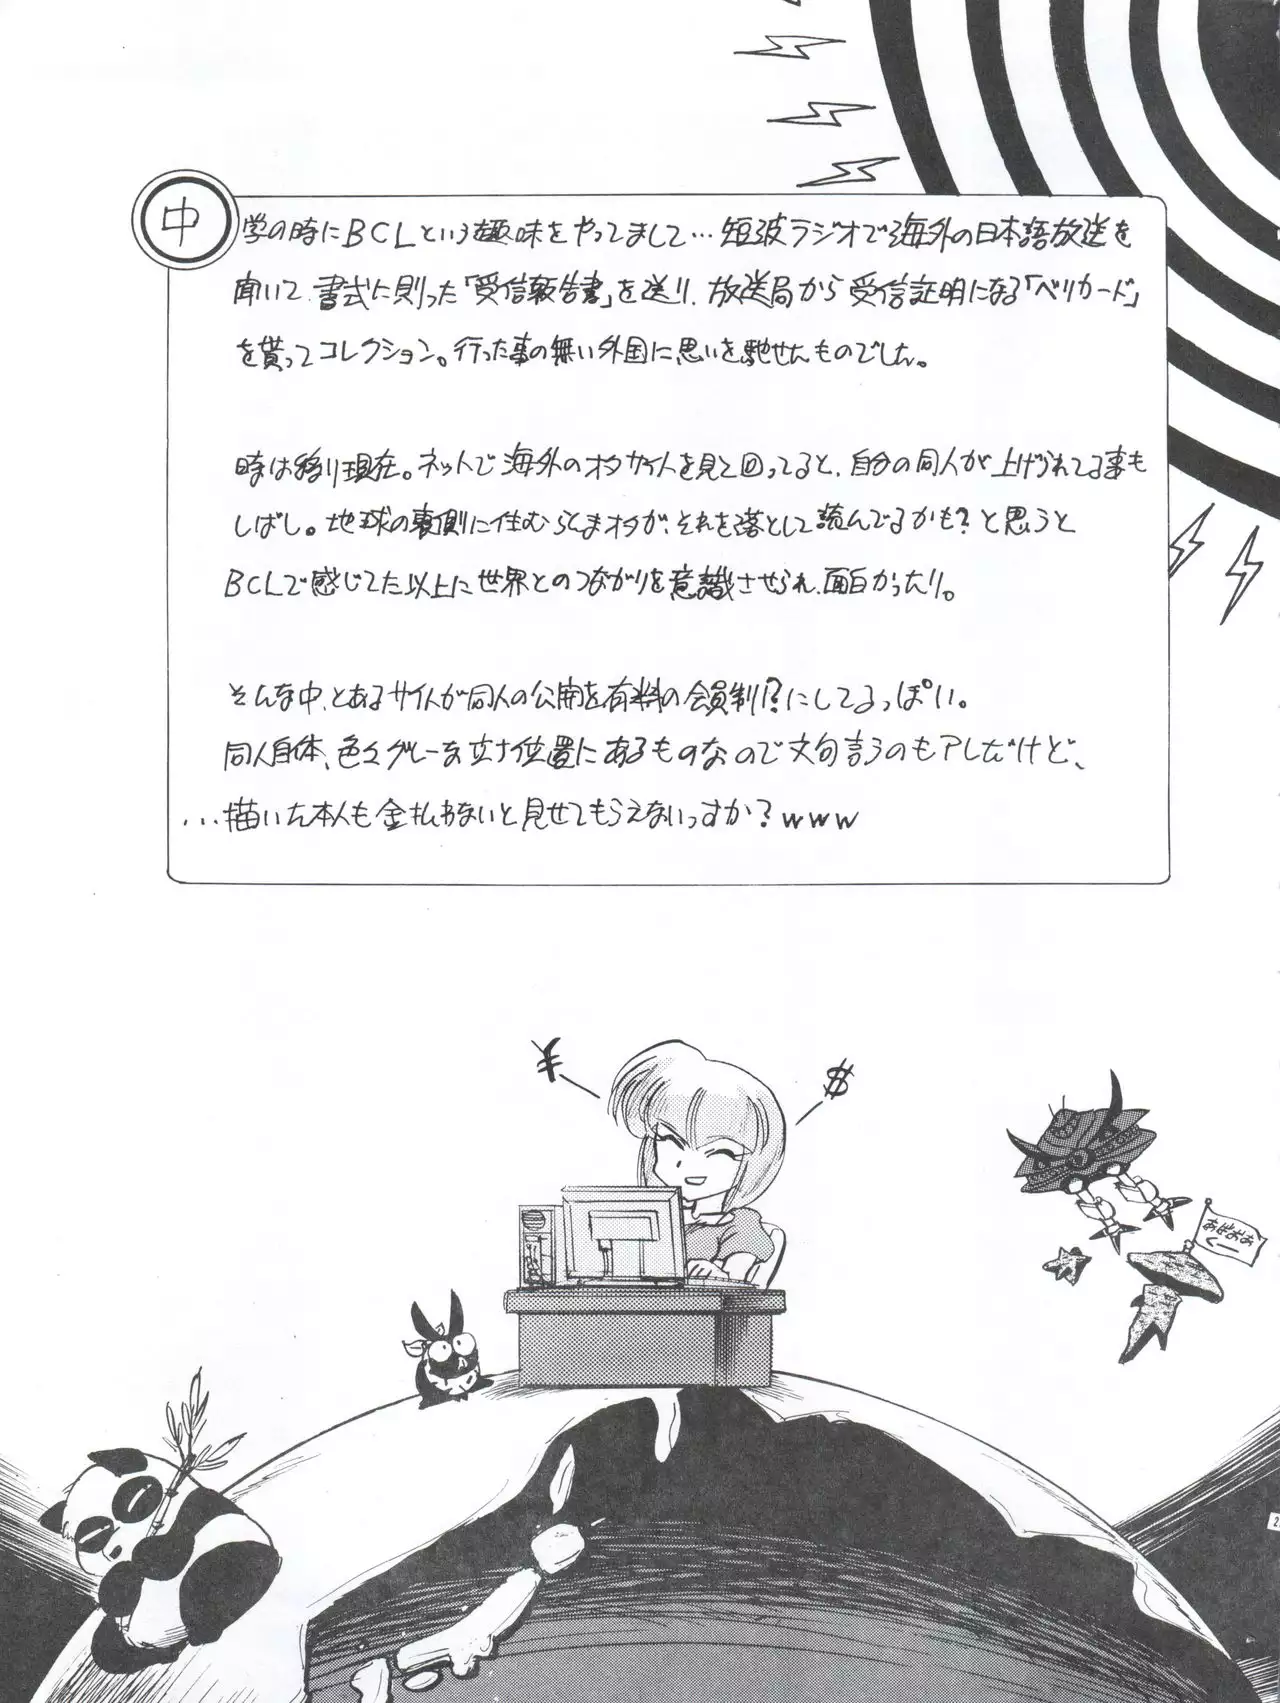 中学の時にBCLという趣味をやってまして…短波ラジオで海外の日本語放送を
聞いて、書式に則った「受信報告書」を送り、放送局から受信証明になる「ベリカード」
を貰ってコレクション。行った事の無い外国に思いを馳せたものでした。
時は移り現在。ネットで海外のオタサイトを見て回ってると、自分の同人が上げられてる事も
しばし。地球の裏側に住むらとまオタが、それを落として読んでるかも?と思うと
BCLで感じてた以上に世界とのつながりを意識させられ、面白かったり。
そんな中、とあるサイトが同人の公開を有料の会員制!?にしてるっぽい。
同人自体、色々グレーな立ち位置にあるものなので文句言うのもアレだけど、
...描いた本人も金払わないと見せてもらえないっすか?www
¥
$
あせおお
くー